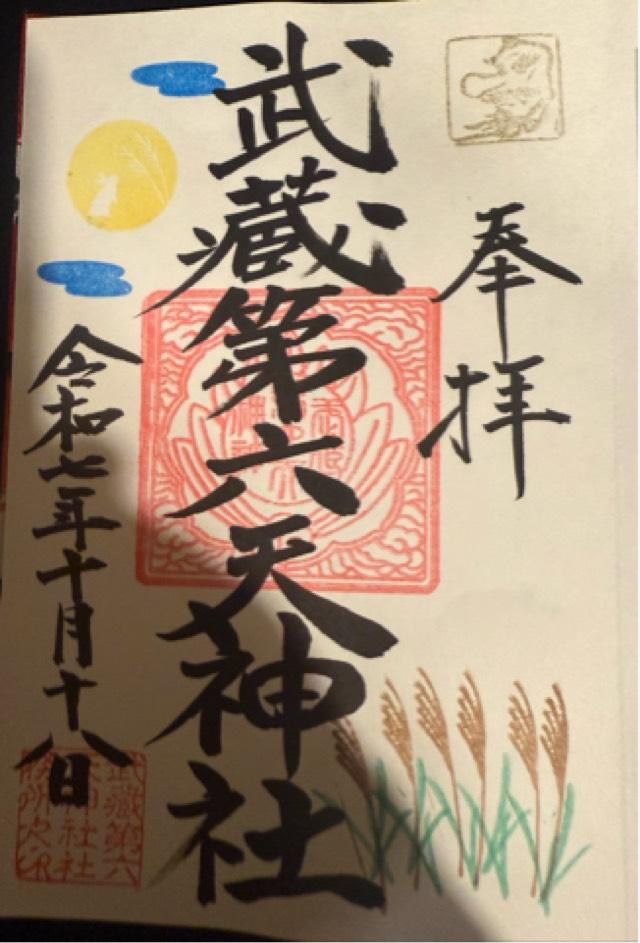 奉拝
武蔵第六天神社
令和七年十月十八日
武蔵第六
天神社社
務所之印